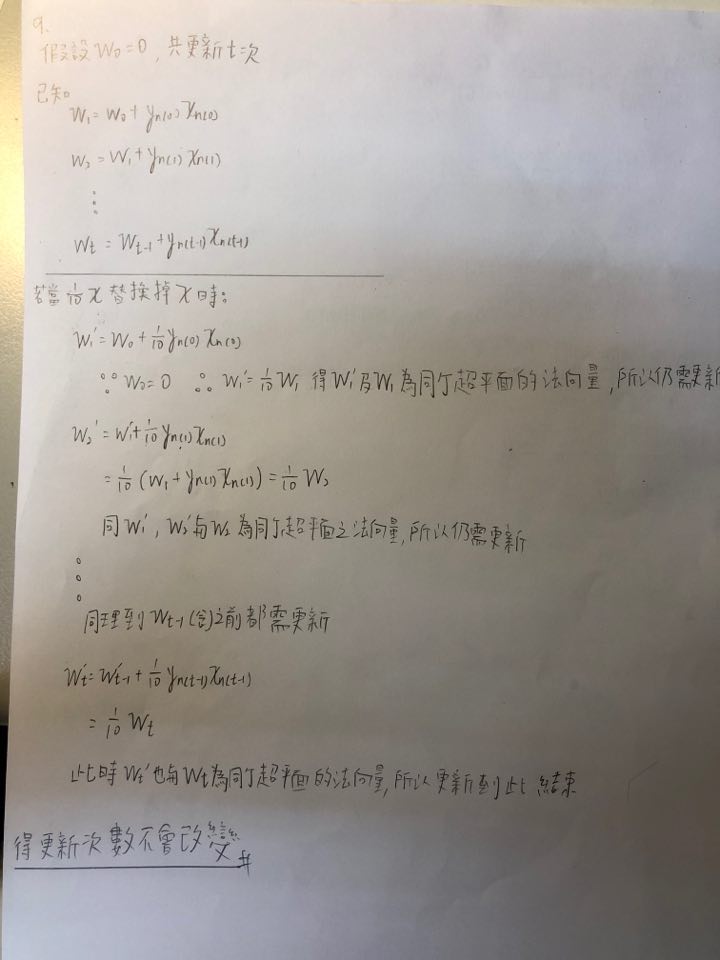 9.
假設 W₀=0, 共更新t次
已知
W₁=W₀+yn(0)xn(0)
W₂=W₁+yn(1)xn(1)
⋮
Wt=Wt-1+yn(t-1)xn(t-1)
若當 1/10 x 替換掉 x 時:
W₁'=W₀+1/10 yn(0)xn(0)
∵W₀=0 ∴W₁'=1/10 W₁ 得W₁'及W₁為同个超平面的法向量,所以仍需更新
W₂'=W₁'+1/10 yn(1)xn(1)
=1/10(W₁+yn(1)xn(1))=1/10 W₂
同W₁', W₂'与W₂為同个超平面之法向量,所以仍需更新
⋮
同理到Wt-1(含)之前都需更新
Wt'=W't-1+1/10 yn(t-1)xn(t-1)
=1/10 Wt
此時Wt'也與Wt為同个超平面的法向量,所以更新到此結束
得更新次數不會改變#